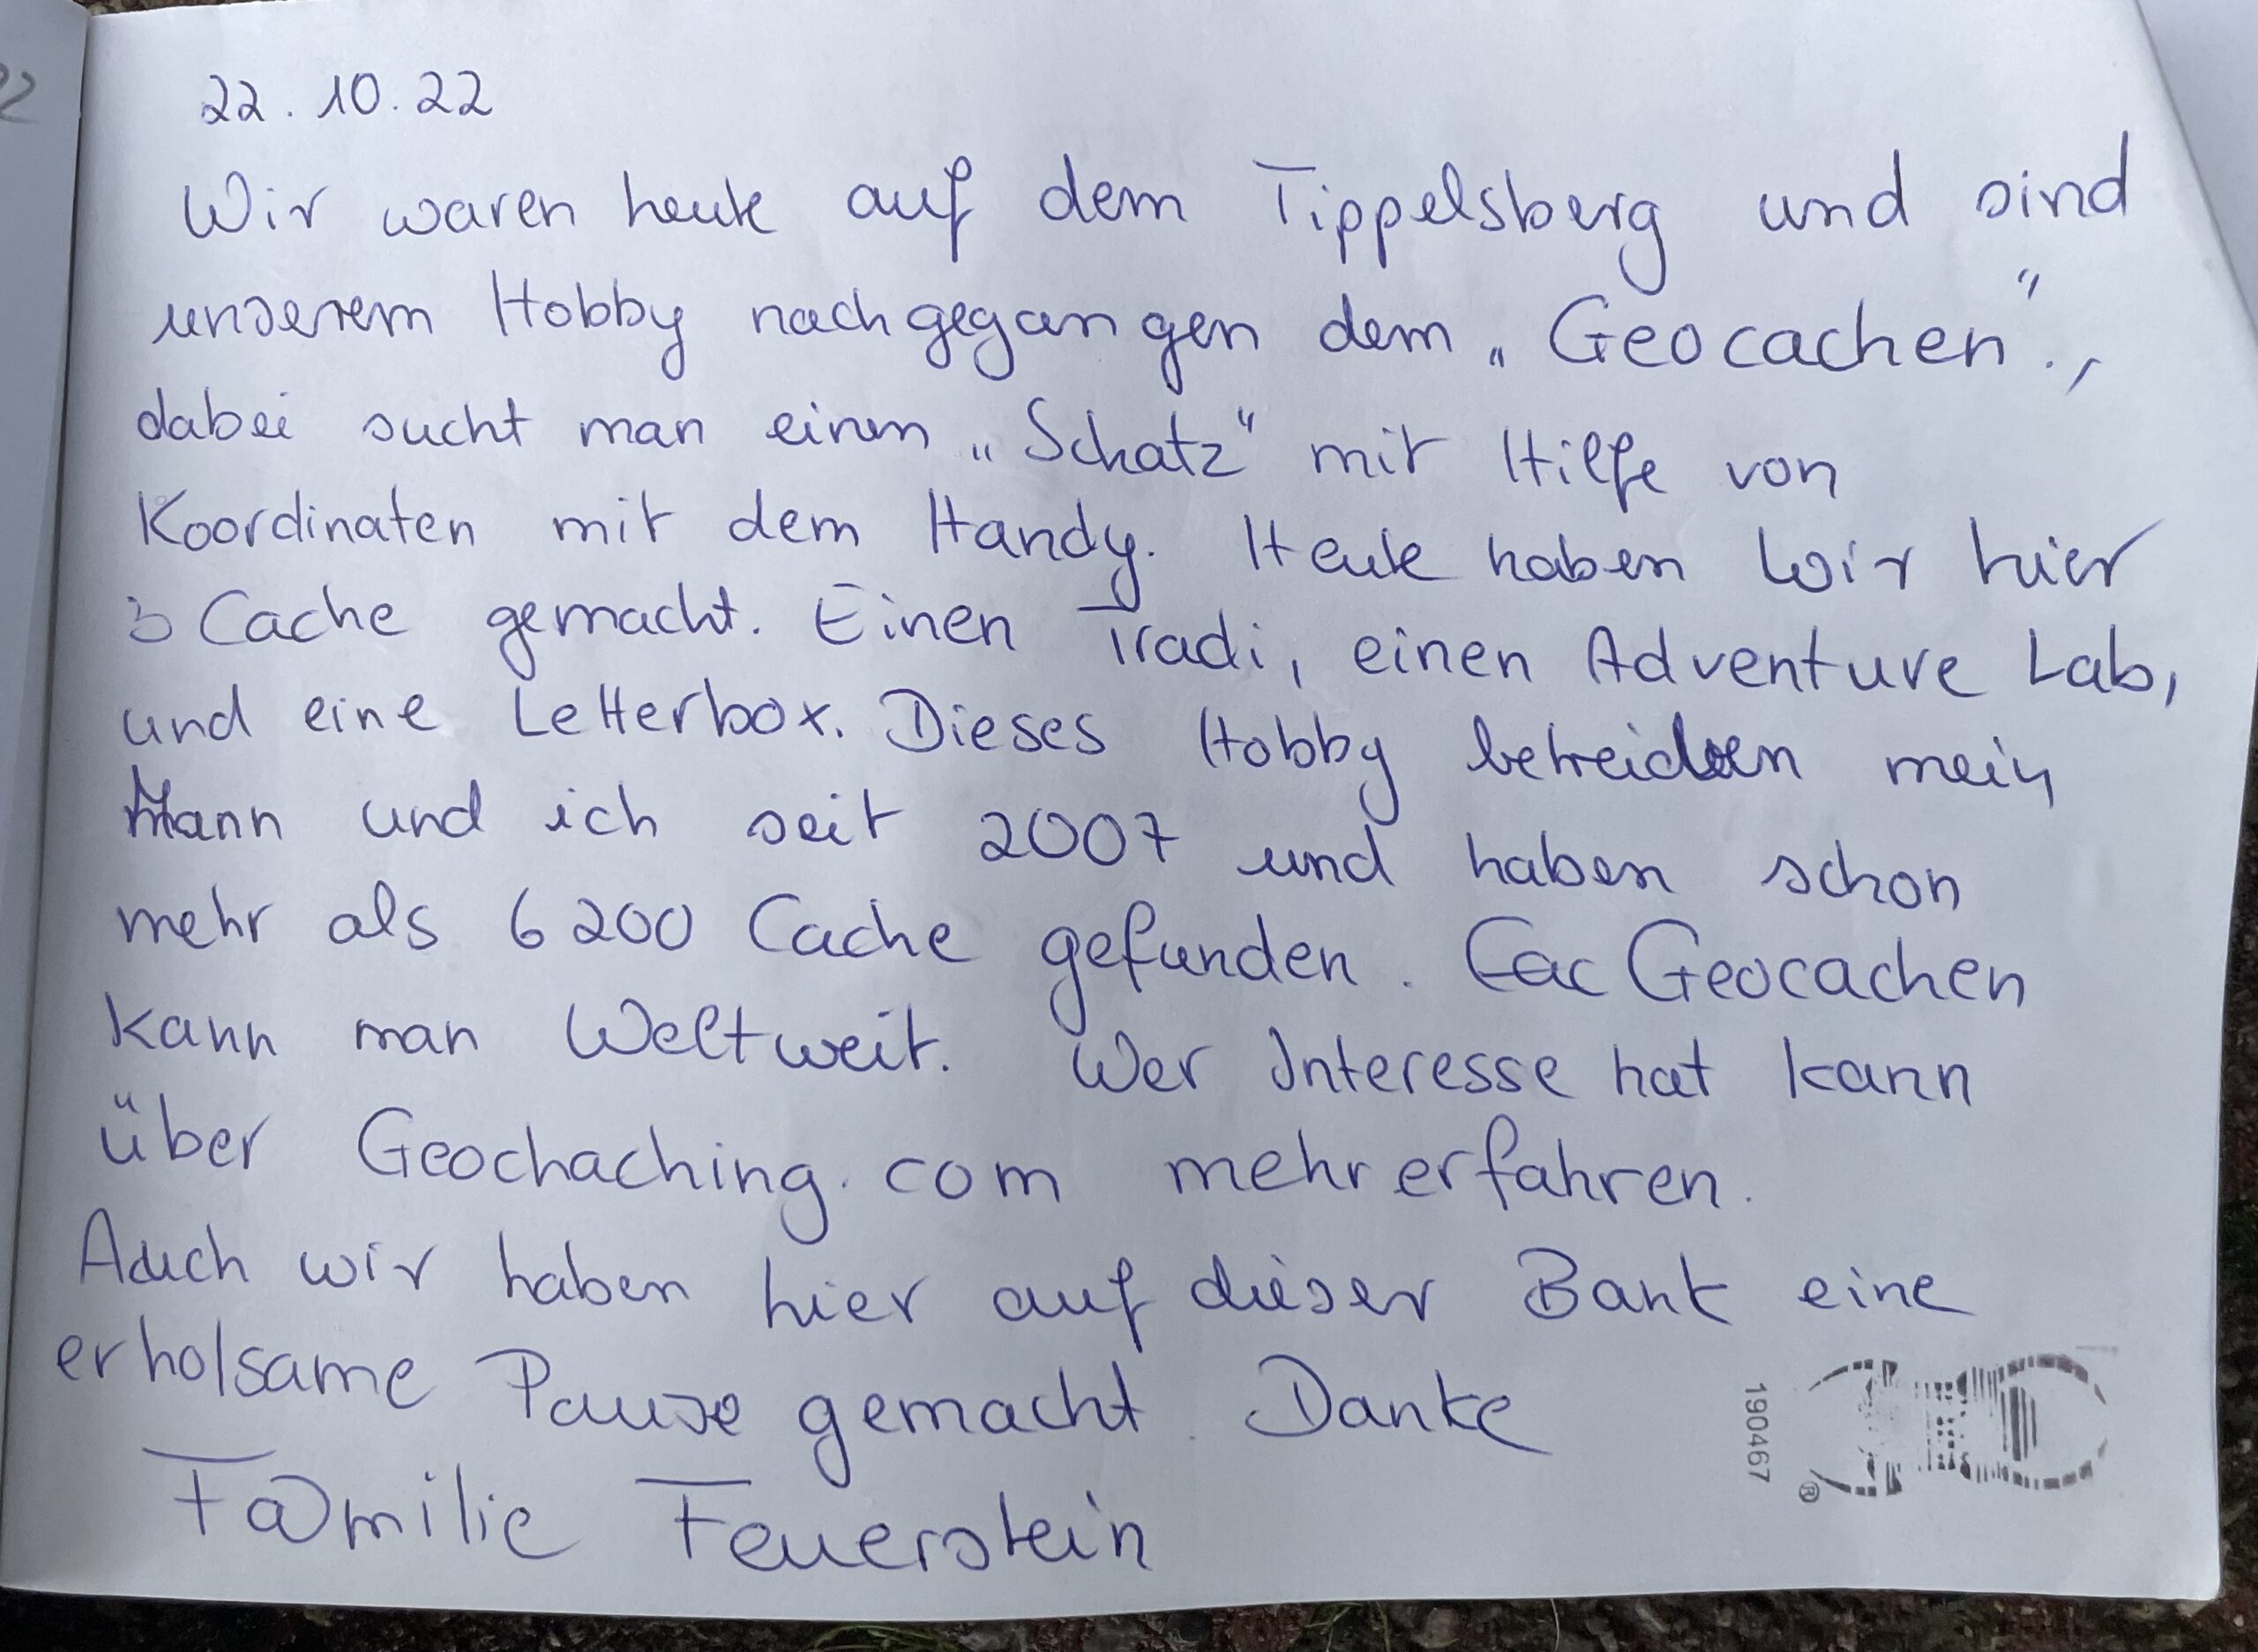 22.10.22
Wir waren heute auf dem Tippelsberg und sind
unserem Hobby nachgegangen dem „Geocachen".,
dabei sucht man einen „Schatz" mit Hilfe von
Koordinaten mit dem Handy. Heute haben wir hier
3 Cache gemacht. Einen Tradi, einen Adventure Lab,
und eine Letterbox. Dieses Hobby betreiben mein
Mann und ich seit 2007 und haben schon
mehr als 6200 Cache gefunden. Geocachen
kann man Weltweit. Wer Interesse hat kann
über Geochaching.com mehr erfahren.
Auch wir haben hier auf dieser Bank eine
erholsame Pause gemacht. Danke
Familie Feuerstein
190467
®